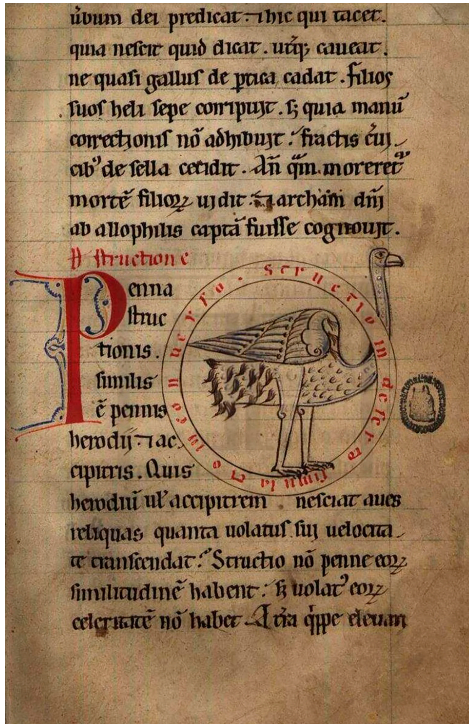 ūbum dei predicat. ⁊ hic qui tacet.
quia nescit quid dicat. utīq; caueat.
ne quasi gallus de ꝑtica cadat. filios
suos heli sepe corripuit. s; quia manū
correctionis nō adhibuit: fractis
de sella cecidit. An̄ moreret᷑
mortē filioꝝ uidit. ⁊ archam dn̄i
ab allophilis captā fuisse cognouit.
structione
Penna
struc
tionis.
similis
ē pennis
herodij ⁊ ac
cipitris. Quis
herodiū ul̓ accipitrem nesciat aues
reliquas quanta uolatus sui uelocita
te transcendat: Structio nō penne eoꝝ
similitudinē habent: s; uolatꝰ eoꝝ
celeritatē nō habet. A t̄ra q̄ppe eleuari
structio in deserto
simulatio in conuerso